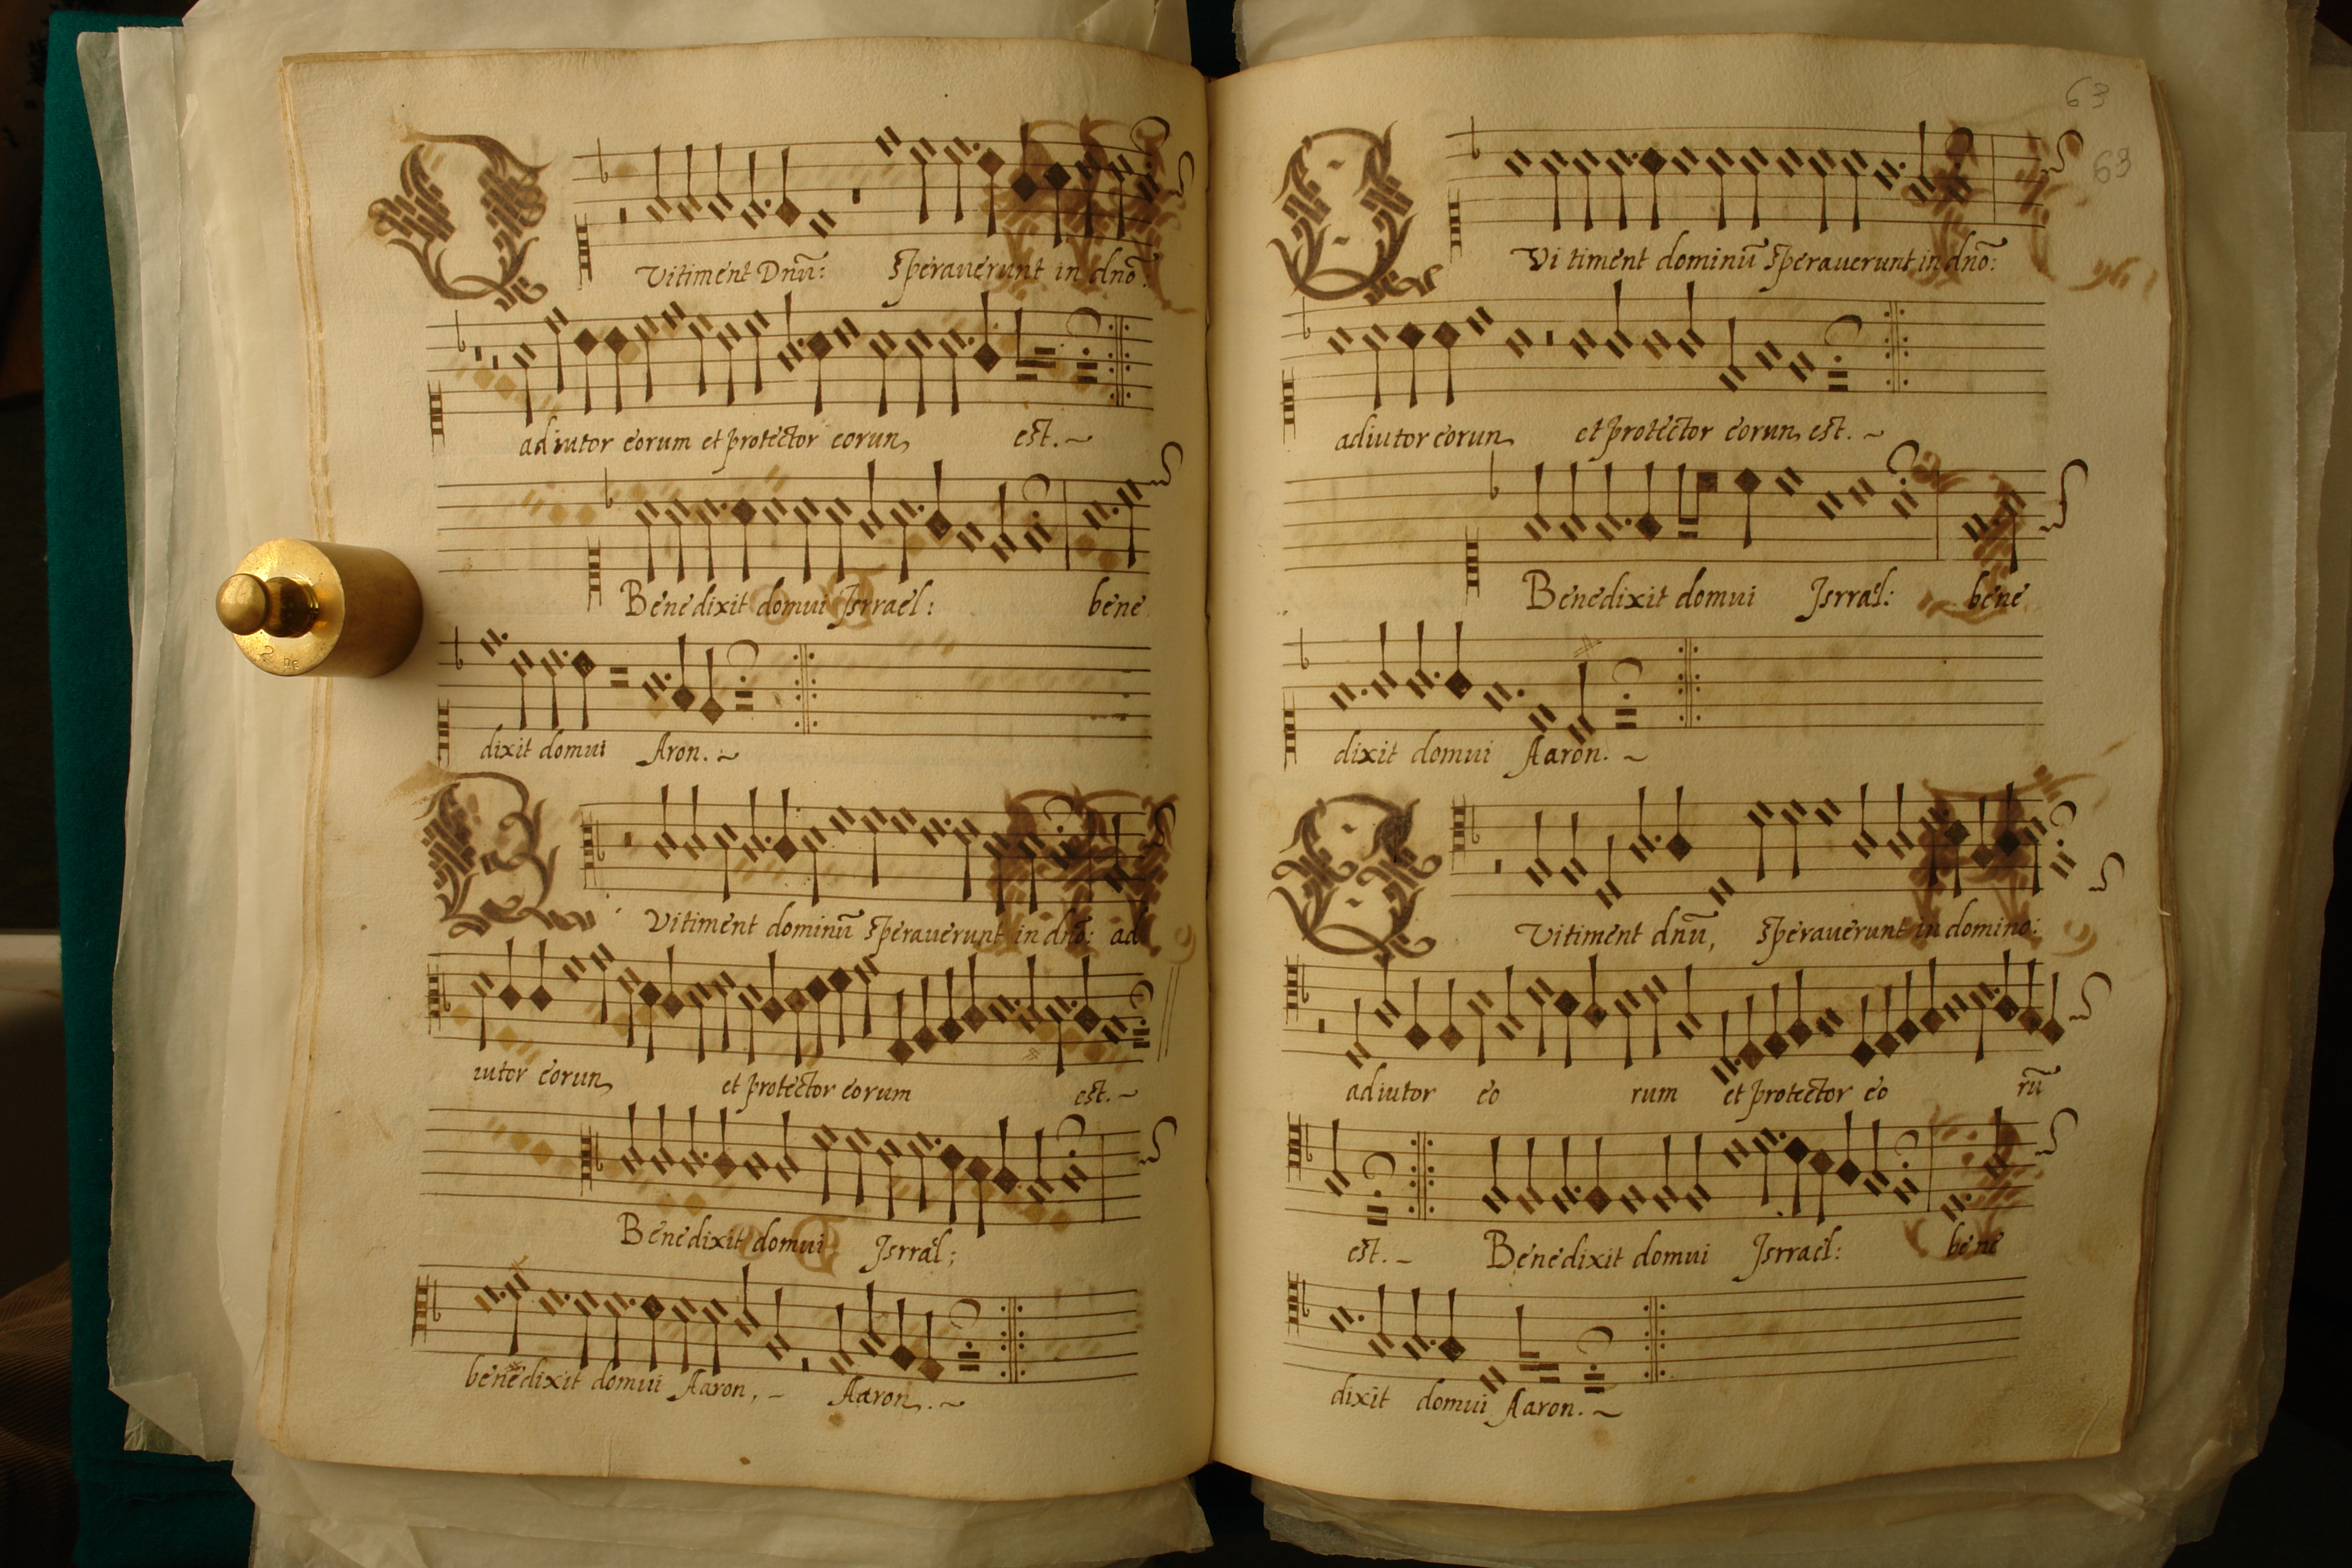 Qui timent Dnū: Sperauerunt in dnō:
adiutor eorum et protector eorun est.~
Benedixit domui Isrrael: bene
dixit domui Aron.~
Qui timent dominū Sperauerunt in dnō: ad
iutor eorun et protector eorum est.~
Benedixit domui Isrral;
benedixit domui Aaron,- Aaron.~
63
63
Qui timent dominū Sperauerunt in dnō:
adiutor eorun et protector eorun est.~
Benedixit domui Isrral: bene
dixit domui Aaron.~
Qui timent dnū, Sperauerunt in domino:
adiutor eo rum et protector eo rū
est.- Benedixit domui Isrrael: bene
dixit domui Aaron.~